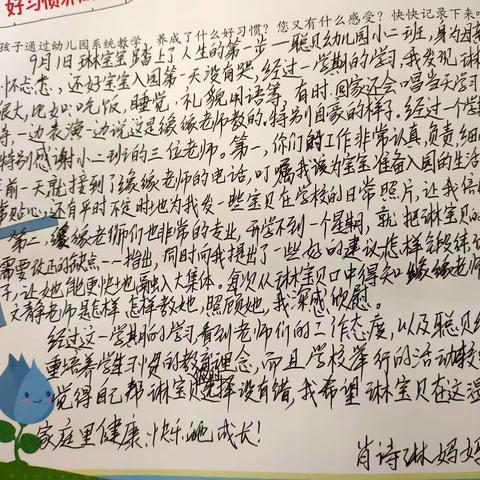 好习惯
孩子通过幼儿园系统教学，养成了什么好习惯？您又有什么感受？快快记录下来吧
9月1日琳宝宝踏上了人生的第一步—聪贝幼儿园小二班，身为母亲
怀忐忑，还好宝宝入园第一天没有哭，经过一学期的学习，我发现琳
很大，比如：吃饭、睡觉，礼貌用语等，有时回家还会唱当天学习
等，一边表演一边说这是缘缘老师教的，特别自豪的样子。经过一个学
特别感谢小二班的三位老师。第一，你们的工作非常认真，负责，细
学前一天就接到了缘缘老师的电话，叮嘱我该为宝宝准备入园的生活
常贴心，还有平时不定时地为我发一些宝贝在学校的日常照片，让我
第二，缘缘老师们也非常的专业，开学不到一个星期，就把琳宝贝的
需要改正的缺点一一指出，同时向我提出了一些好的建议怎样
子，让她能更快地融入大集体。每次从琳宝贝口中得知缘缘老师
文静老师是怎样怎样教她，照顾她，我深感欣慰。
经过这一学期的学习，看到老师们的工作态度，以及聪贝
重培养学生习惯的教育理念，而且学校举行的活动
觉得自己帮琳宝贝选择没有错，我希望琳宝贝在这温
家庭里健康、快乐地成长！
肖诗琳妈妈